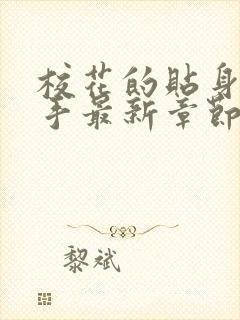 校花的贴身
手最新章節
黎斌